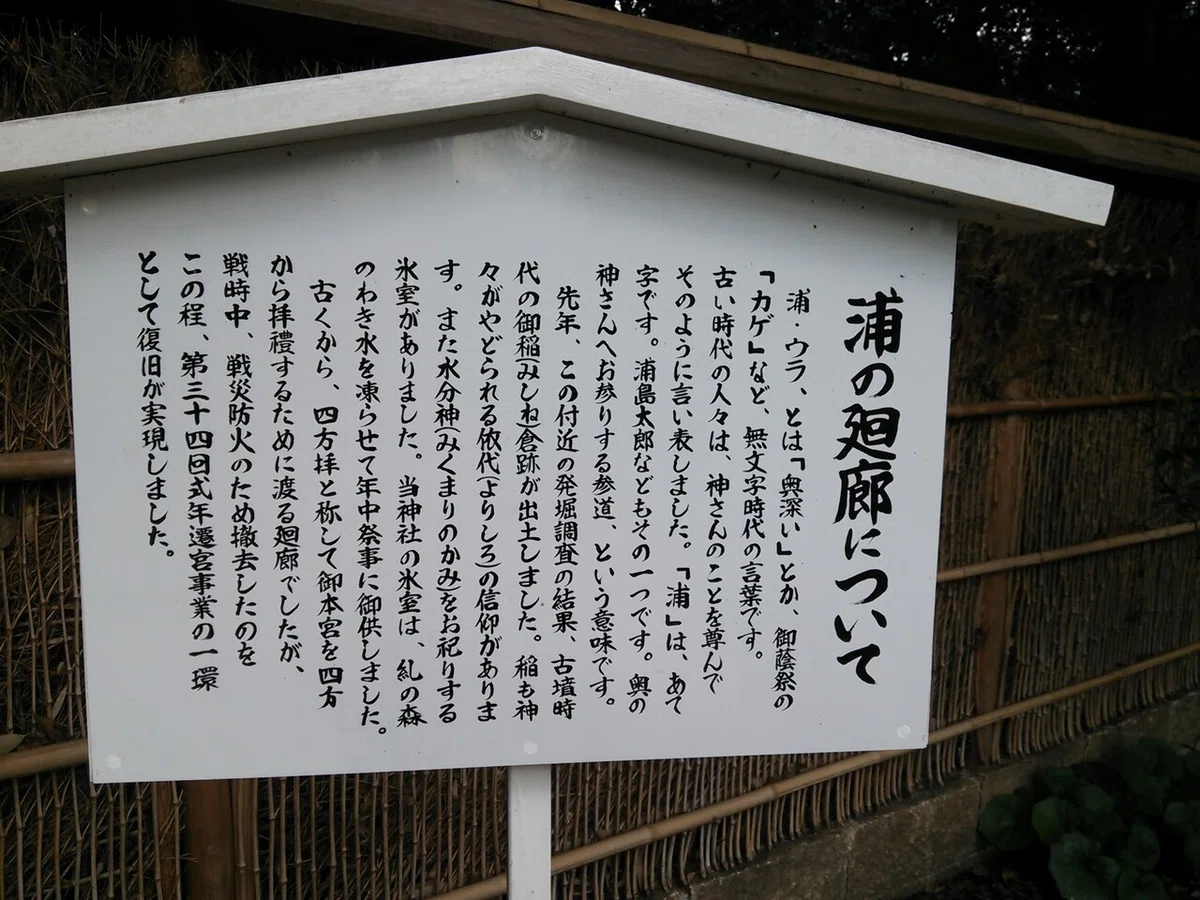 浦の廻廊について
浦・ウラ、とは「奥深い」とか、御蔭祭の
「カゲ」など、無文字時代の言葉です。
古い時代の人々は、神さんのことを尊んで
そのように言い表しました。「浦」は、あて
字です。浦島太郎などもその一つです。奥の
神さんへお参りする参道、という意味です。
先年、この付近の発掘調査の結果、古墳時
代の御稲(みしね)倉跡が出土しました。稲も神
々がやどられる依代(よりしろ)の信仰がありま
す。また水分神(みくまりのかみ)をお祀りする
氷室がありました。当神社の氷室は、糺の森
のわき水を凍らせて年中祭事に御供しました。
古くから、四方拝と称して御本宮を四方
から拝禮するために渡る廻廊でしたが、
戦時中、戦災防火のため撤去したのを
この程、第三十四回式年遷宮事業の一環
として復旧が実現しました。